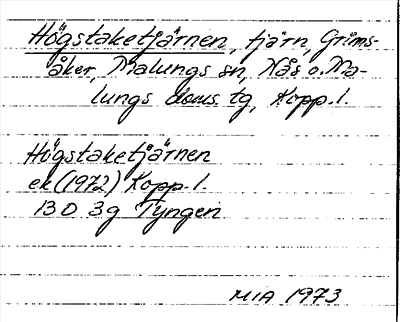 Högstaketjärnen, tjärn, Grims-
åker, Malungs sn, Nås o. Ma-
lungs doms. tg, Kopp. l.
Högstaketjärnen
ek (1972) Kopp. l.
13 D 3g Tyngen
MIA 1973